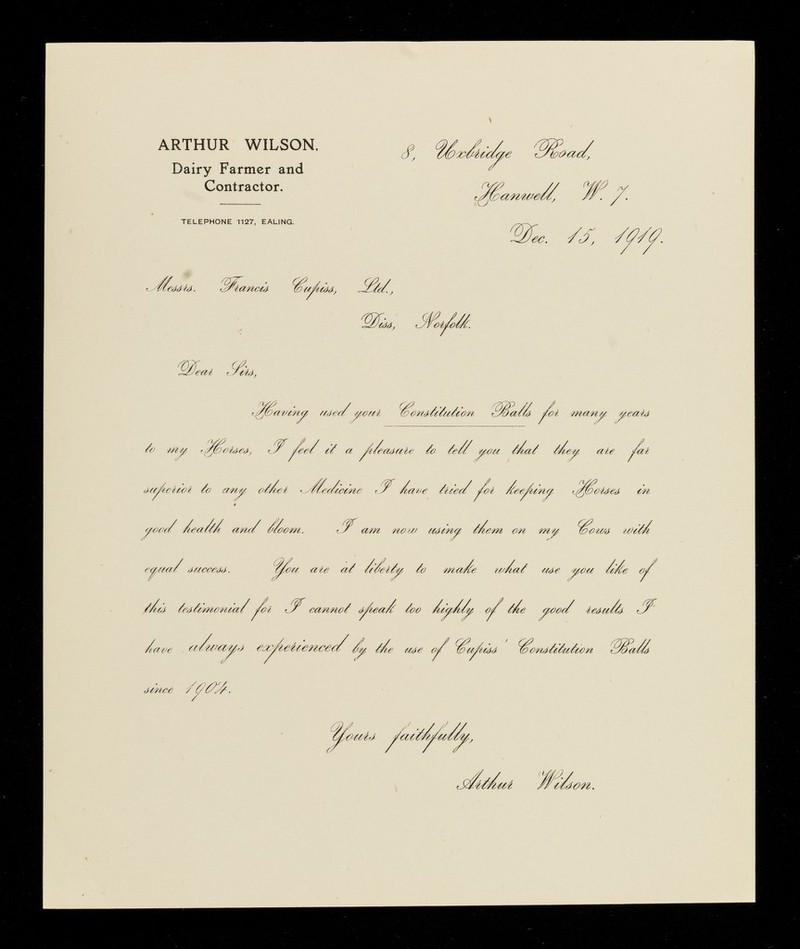 ARTHUR WILSON.
Dairy Farmer and
Contractor.
TELEPHONE 1127, EALING.
8, Uxbridge Road,
Hanwell, W. 7.
Dec. 15, 1919.
Messrs. Francis Cupiss, Ltd.,
Diss, Norfolk.
Dear Sirs,
Having used your Constitution Balls for many years
to my Horses, I feel it a pleasure to tell you that they are far
superior to any other Medicine I have tried for keeping Horses in
good health and bloom. I am now using them on my Cows with
equal success. You are at liberty to make what use you like of
this testimonial for I cannot speak too highly of the good results I
have always experienced by the use of Cupiss' Constitution Balls
since 1904.
Yours faithfully,
Arthur Wilson.